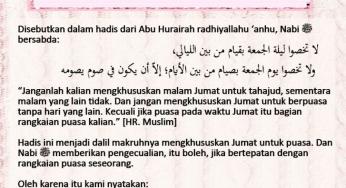 Disebutkan dalam hadis dari Abu Hurairah radhiyallahu 'anhu, Nabi ﷺ
bersabda:
لا تخصوا ليلة الجمعة بقيام من بين الليالي،
ولا تخصوا يوم الجمعة بصيام من بين الأيام؛ إلاَّ أن يكون في صوم يصومه
"Janganlah kalian mengkhususkan malam Jumat untuk tahajud, sementara
malam yang lain tidak. Dan jangan mengkhususkan Jumat untuk berpuasa
tanpa hari yang lain. Kecuali jika puasa pada waktu Jumat itu bagian
rangkaian puasa kalian." [HR. Muslim]
Hadis ini menjadi dalil makruhnya mengkhususkan Jumat untuk puasa. Dan
Nabi ﷺ memberikan pengecualian, itu boleh, jika bertepatan dengan
rangkaian puasa seseorang.
Oleh karena itu kami nyatakan: